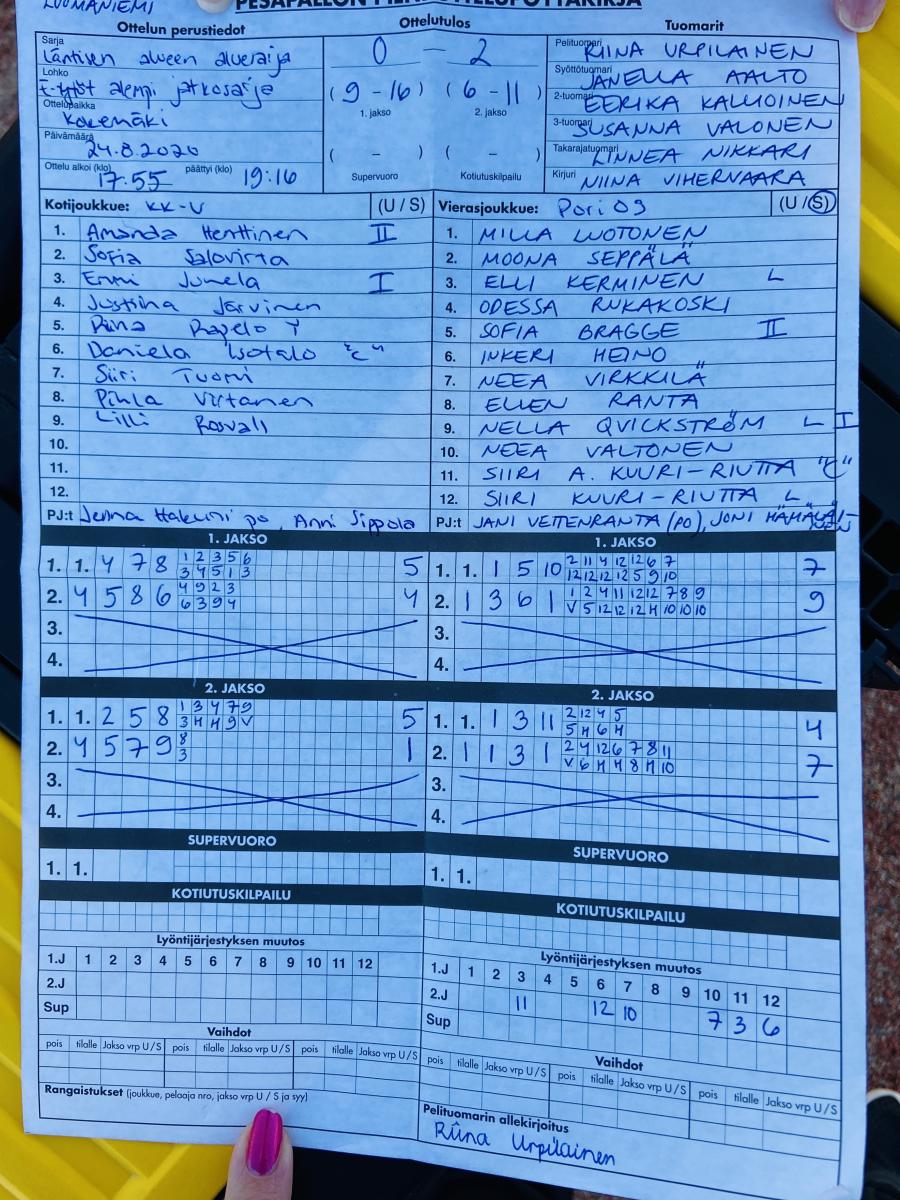 LUOMANIEMI
PESÄPALLON PIENOTTELUPÖYTÄKIRJA
Ottelun perustiedot
Sarja
Läntisen alueen aluesarja
Lohko
E-tytöt alempi jatkosarja
Ottelupaikka
Kokemäki
Päivämäärä
24.8.2020
Ottelu alkoi (klo) 17:55 päättyi (klo) 19:16
Ottelutulos
0 – 2
( 9 – 16 ) ( 6 – 11 )
1. jakso 2. jakso
( – ) ( – )
Supervuoro Kotiutuskilpailu
Tuomarit
Pelituomari RIINA URPILAINEN
Syöttötuomari JANELLA AALTO
2-tuomari EERIKA KALLIOINEN
3-tuomari SUSANNA VALONEN
Takarajatuomari LINNEA NIKKARI
Kirjuri NIINA VIHERVAARA
Kotijoukkue: KK-V (U / S)
1. Amanda Henttinen II
2. Sofia Salovirta
3. Emmi Junela I
4. Justiina Järvinen
5. Riina Rapelo Y
6. Daniela Isotalo "C"
7. Siiri Tuomi
8. Pihla Virtanen
9. Lilli Rosvall
10.
11.
12.
PJ:t Jenna Hakuni po, Anni Sippola
Vierasjoukkue: Pori 09 (U / S)
1. MILLA LUOTONEN
2. MOONA SEPPÄLÄ
3. ELLI KERMINEN L
4. ODESSA RUKAKOSKI
5. SOFIA BRAGGE II
6. INKERI HEINO
7. NEEA VIRKKILÄ
8. ELLEN RANTA
9. NELLA QVICKSTRÖM L I
10. NEEA VALTONEN
11. SIIRI A. KUURI-RIUTTA "C"
12. SIIRI KUURI-RIUTTA L
PJ:t JANI VETTENRANTA (PO), JONI HÄMÄLÄINEN
1. JAKSO
1 2 3 5 6
1. 1. 4 7 8 3 4 5 1 3 5
4 9 2 3
2. 4 5 8 6 6 3 9 4 4
3.
4.
1. JAKSO
2 11 4 12 12 6 7
1. 1. 1 5 10 12 12 12 12 5 9 10 7
1 2 4 11 12 12 7 8 9
2. 1 3 6 1 V 5 12 12 12 H 10 10 10 9
3.
4.
2. JAKSO
1 3 4 7 9
1. 1. 2 5 8 3 H H 9 V 5
8
2. 4 5 7 9 3 1
3.
4.
2. JAKSO
2 12 4 5
1. 1. 1 3 11 5 H 6 H 4
2 4 12 6 7 8 11
2. 1 1 3 1 V 6 H H 8 H 10 7
3.
4.
SUPERVUORO
1. 1.
SUPERVUORO
1. 1.
KOTIUTUSKILPAILU
KOTIUTUSKILPAILU
Lyöntijärjestyksen muutos
1.J 1 2 3 4 5 6 7 8 9 10 11 12
2.J
Sup
Lyöntijärjestyksen muutos
1.J 1 2 3 4 5 6 7 8 9 10 11 12
2.J 11 12 10 7 3 6
Sup
Vaihdot
pois tilalle Jakso vrp U/S pois tilalle Jakso vrp U/S pois tilalle Jakso vrp U/S
Vaihdot
pois tilalle Jakso vrp U/S pois tilalle Jakso vrp U/S pois tilalle Jakso vrp U/S
Rangaistukset (joukkue, pelaaja nro, jakso vrp U / S ja syy)
Pelituomarin allekirjoitus
Riina Urpilainen